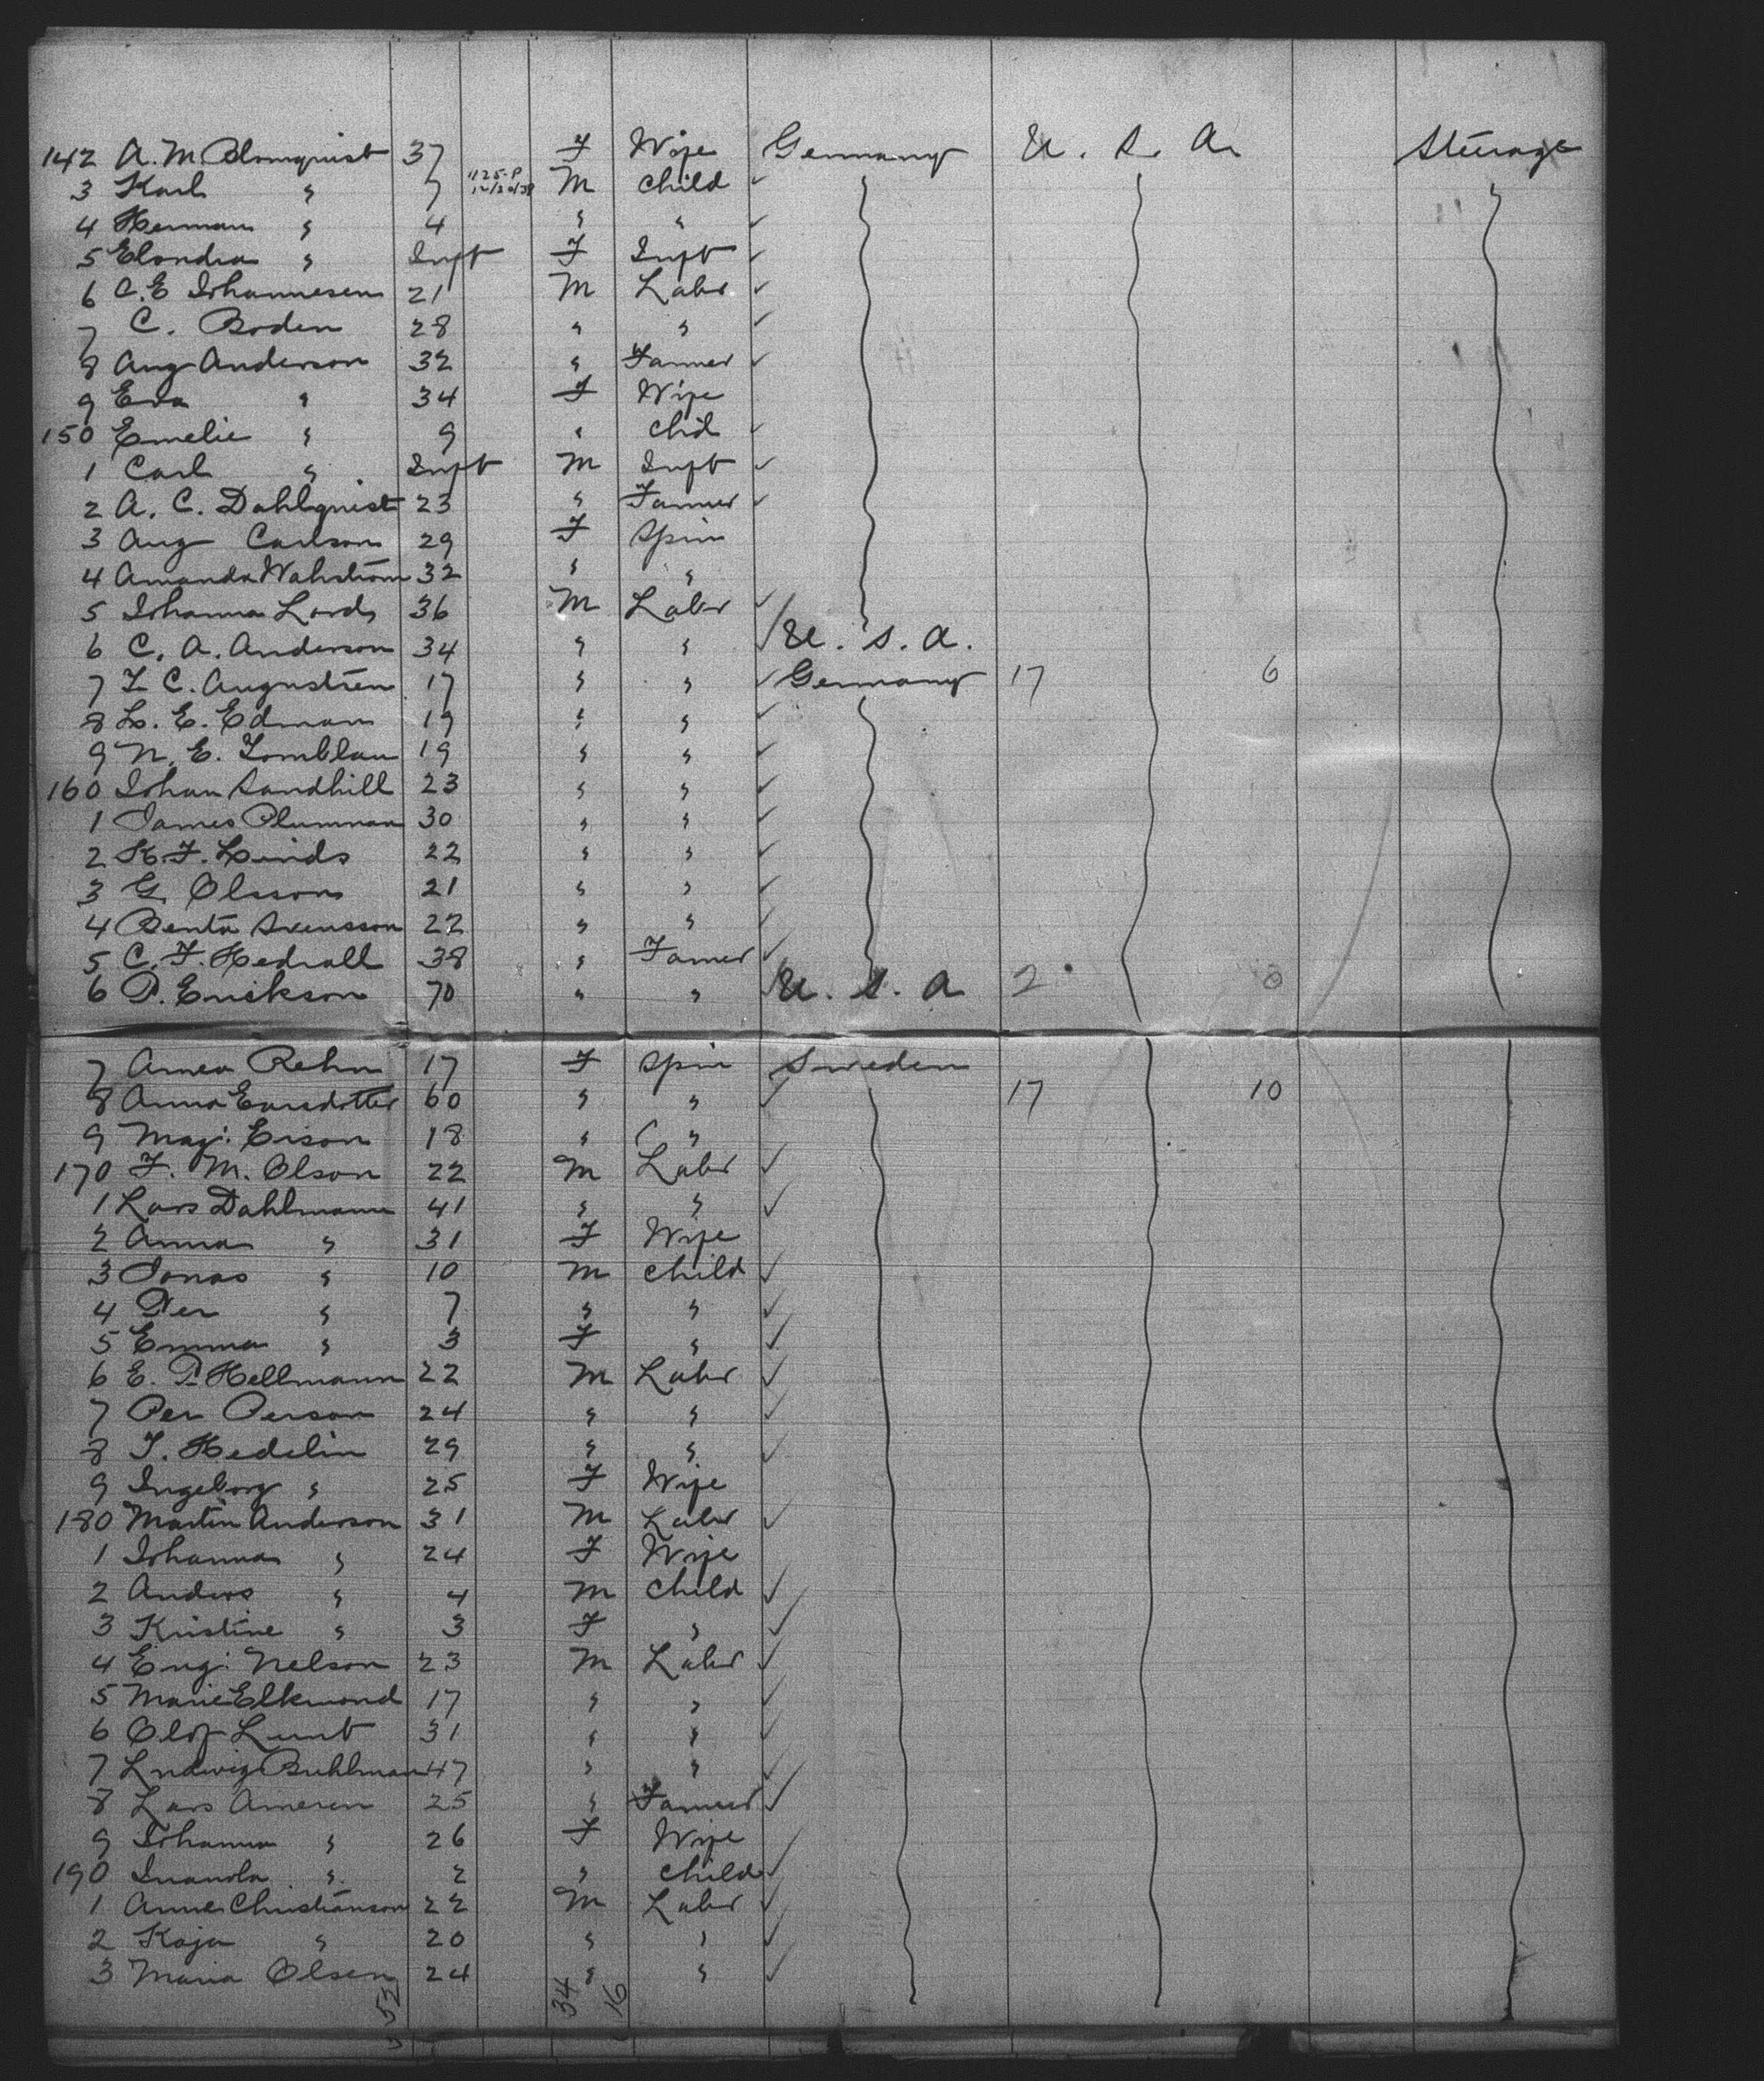 142 A. M. Blomquist 37 F Wife Germany U. S. A. Steerage
3 Karl " 7 M child
4 Herman " 4 " "
5 Elondia " Inft F Inft
6 C. E Johannesen 21 M Labr
7 C. Boden 28 " "
8 Aug Anderson 32 " Farmer
9 Eva " 34 F Wife
150 Emelie " 9 " Chil
1 Carl " Inft M Inft
2 A. C. Dahlquist 23 " Farmer
3 Aug Carlson 29 F Spin
4 Amanda Wahstrom 32 " "
5 Johanna Lords 36 M Labr
6 C. A. Anderson 34 " " U. S. A.
7 F C. Augustren 17 " " Germany 17 6
8 L. E. Edman 19 " "
9 N. E. Tomblau 19 " "
160 Johan Sandhill 23 " "
1 James Plumman 30 " "
2 K. F. Linds 22 " "
3 G. Olsson 21 " "
4 Benta Svensson 22 " "
5 C. F. Hedvall 38 " Famer
6 P. Erikson 70 " " U. S. A 2 0
7 Amea Rehn 17 F Spin Sweden
8 Anna Earsdotter 60 " " 17 10
9 Mag. Erson 18 " "
170 F. M. Olson 22 M Labr
1 Lars Dahlmann 41 " "
2 Anna " 31 F Wife
3 Jonas " 10 M child
4 Per " 7 " "
5 Emma " 3 F "
6 E. P. Hellmann 22 M Labr
7 Per Person 24 " "
8 J. Hedelin 29 " "
9 Ingeborg " 25 F Wife
180 Martin Anderson 31 M Labr
1 Johanna " 24 F Wife
2 Anders " 4 M Child
3 Kristine " 3 F "
4 Eng. Nelson 23 M Labr
5 Marie Elkmond 17 " "
6 Olof Lunt 31 " "
7 Ludwig Buhlman 47 " "
8 Lars Ameren 25 " Farmer
9 Johanna " 26 F Wife
190 " 2 " Child
1 Anne Christianson 22 M Labr
2 Kaja " 20 " "
3 Maria Olsen 24 " "
52 34 16